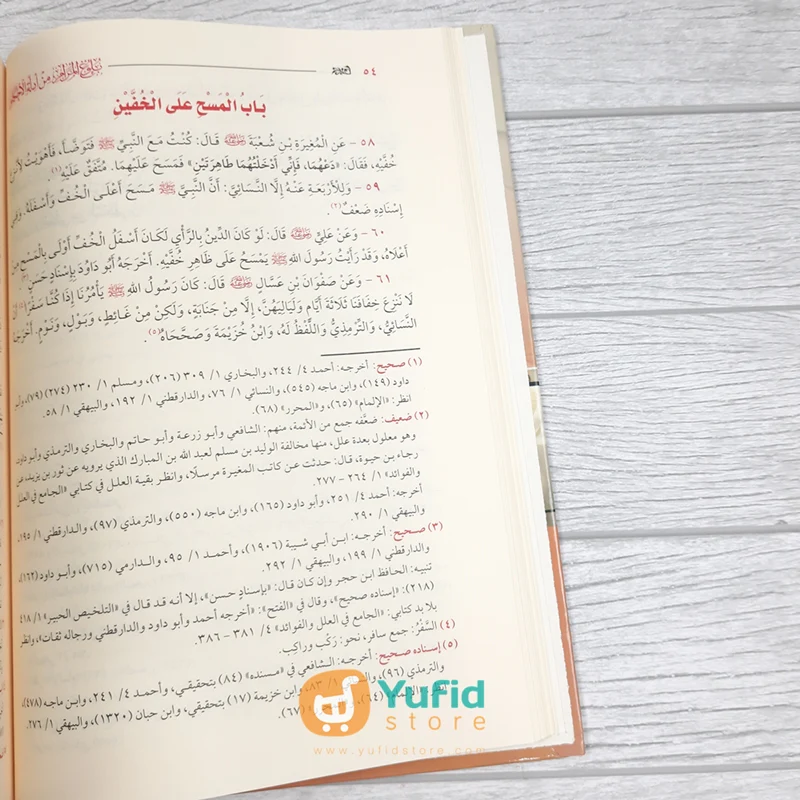 ٥٤
بَابُ الْمَسْحِ عَلَى الْخُفَّيْنِ
٥٨ - عَنِ الْمُغِيرَةِ بْنِ شُعْبَةَ رضي الله عنه قَالَ: كُنْتُ مَعَ النَّبِيِّ ﷺ فَتَوَضَّأَ، فَأَهْوَيْتُ لِأَنْزِعَ
خُفَّيْهِ، فَقَالَ: «دَعْهُمَا، فَإِنِّي أَدْخَلْتُهُمَا طَاهِرَتَيْنِ» فَمَسَحَ عَلَيْهِمَا. مُتَّفَقٌ عَلَيْهِ(١).
٥٩ - وَلِلْأَرْبَعَةِ عَنْهُ إِلَّا النَّسَائِيَّ: أَنَّ النَّبِيَّ ﷺ مَسَحَ أَعْلَى الْخُفِّ وَأَسْفَلَهُ. وَفِي
إِسْنَادِهِ ضَعْفٌ(٢).
٦٠ - وَعَنْ عَلِيٍّ رضي الله عنه قَالَ: لَوْ كَانَ الدِّينُ بِالرَّأْيِ لَكَانَ أَسْفَلُ الْخُفِّ أَوْلَى بِالْمَسْحِ مِنْ
أَعْلَاهُ، وَقَدْ رَأَيْتُ رَسُولَ اللهِ ﷺ يَمْسَحُ عَلَى ظَاهِرِ خُفَّيْهِ. أَخْرَجَهُ أَبُو دَاوُدَ بِإِسْنَادٍ حَسَنٍ(٣).
٦١ - وَعَنْ صَفْوَانَ بْنِ عَسَّالٍ رضي الله عنه قَالَ: كَانَ رَسُولُ اللهِ ﷺ يَأْمُرُنَا إِذَا كُنَّا سَفْرًا(٤) أَنْ
لَا نَنْزِعَ خِفَافَنَا ثَلَاثَةَ أَيَّامٍ وَلَيَالِيَهُنَّ، إِلَّا مِنْ جَنَابَةٍ، وَلَكِنْ مِنْ غَائِطٍ، وَبَوْلٍ، وَنَوْمٍ. أَخْرَجَهُ
النَّسَائِيُّ، وَالتِّرْمِذِيُّ وَاللَّفْظُ لَهُ، وَابْنُ خُزَيْمَةَ وَصَحَّحَاهُ(٥).
(١) صحيح: أخرجه: أحمد ٤/ ٢٤٤، والبخاري ١/ ٣٠٩ (٢٠٦)، ومسلم ١/ ٢٣٠ (٢٧٤) (٧٩)، وأبو
داود (١٤٩)، وابن ماجه (٥٤٥)، والنسائي ١/ ٧٦، والدارقطني ١/ ١٩٢، والبيهقي ١/ ٥٨.
انظر: «الإلمام» (٦٥)، و«المحرر» (٦٨).
(٢) ضعيف: ضعَّفه جمع من الأئمة، منهم: الشافعي وأبو زرعة وأبو حاتم والبخاري والترمذي وأبو داود،
وهو معلول بعدة علل، منها مخالفة الوليد بن مسلم لعبد الله بن المبارك الذي يرويه عن ثور بن يزيد، عن
رجاء بن حيوة، قال: حدثت عن كاتب المغيرة مرسلًا، وانظر بقية العلل في كتابي «الجامع في العلل
والفوائد» ١/ ٢٦٤ - ٢٧٧.
أخرجه: أحمد ٤/ ٢٥١، وأبو داود (١٦٥)، وابن ماجه (٥٥٠)، والترمذي (٩٧)، والدارقطني ١/ ١٩٥،
والبيهقي ١/ ٢٩٠.
(٣) صحيح: أخرجه: ابن أبي شيبة (١٩٠٦)، وأحمد ١/ ٩٥، والدارمي (٧١٥)، وأبو داود (١٦٢)،
والدارقطني ١/ ١٩٩، والبيهقي ١/ ٢٩٢.
تنبيه: الحافظ ابن حجر وإن كان قال: «بإسنادٍ حسن»، إلا أنه قد قال في «التلخيص الحبير» ١/ ٤١٨
(٢١٨): «إسناده صحيح»، وقال في «الفتح»: «أخرجه أحمد وأبو داود والدارقطني ورجاله ثقات»، وانظر
بلا بد كتابي: «الجامع في العلل والفوائد» ٤/ ٣٨١ - ٣٨٦.
(٤) السَّفْرُ: جمع سافر، نحو: رَكْب وراكِب.
(٥) إسناده صحيح: أخرجه: الشافعي في «مسنده» (٨٤) بتحقيقي، وأحمد ٤/ ٢٤١، وابن ماجه (٤٧٨)،
والترمذي (٩٦)، ١/ ٨٣، وابن خزيمة (١٧) بتحقيقي، وابن حبان (١٣٢٠)، والبيهقي ١/ ٢٧٦.
(٦٤)، (٦٧).
Yufid
store
www.yufidstore.com